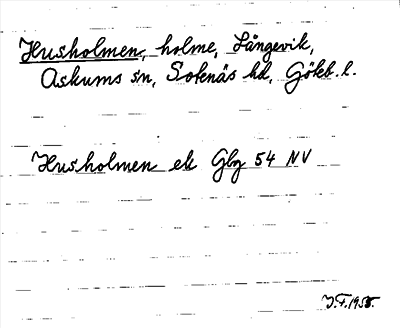 Husholmen, holme, Långevik,
Askums sn, Sotenäs hd, Göteb. l.
Husholmen ek Gbg 54 NV
J.F. 1955.